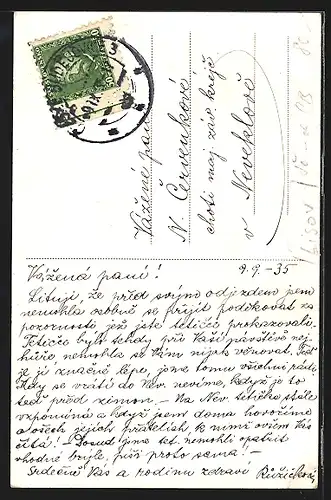 Vážené paní
N Červenkové
choti maj. záv. krejč.
v Neveklově
9.9.-35
Vážená paní!
Lituji, že před svým odjezdem jsem
nemohla osobně se přijít poděkovat za
pozornosti, jež jste tetičce prokazovali.
Tetičce bylo tehdy při Vaší návštěvě nej
hůře, nemohla se Vám nijak věnovat. Teď
je jí značně lépe, jsme tomu všichni rádi.
Kdy se vrátí do Nev. nevíme, když je to
teď před zimou. - Na Nev. tetička stále
vzpomíná a když jsem doma hovoříme
o všech jejich přátelích, k nimž ovšem Vás
čítá! - Dosud jsme tet. nemohli opatřit
vhodné brýle, píši proto sama! -
Srdečně Vás a rodinu zdraví Růžičková